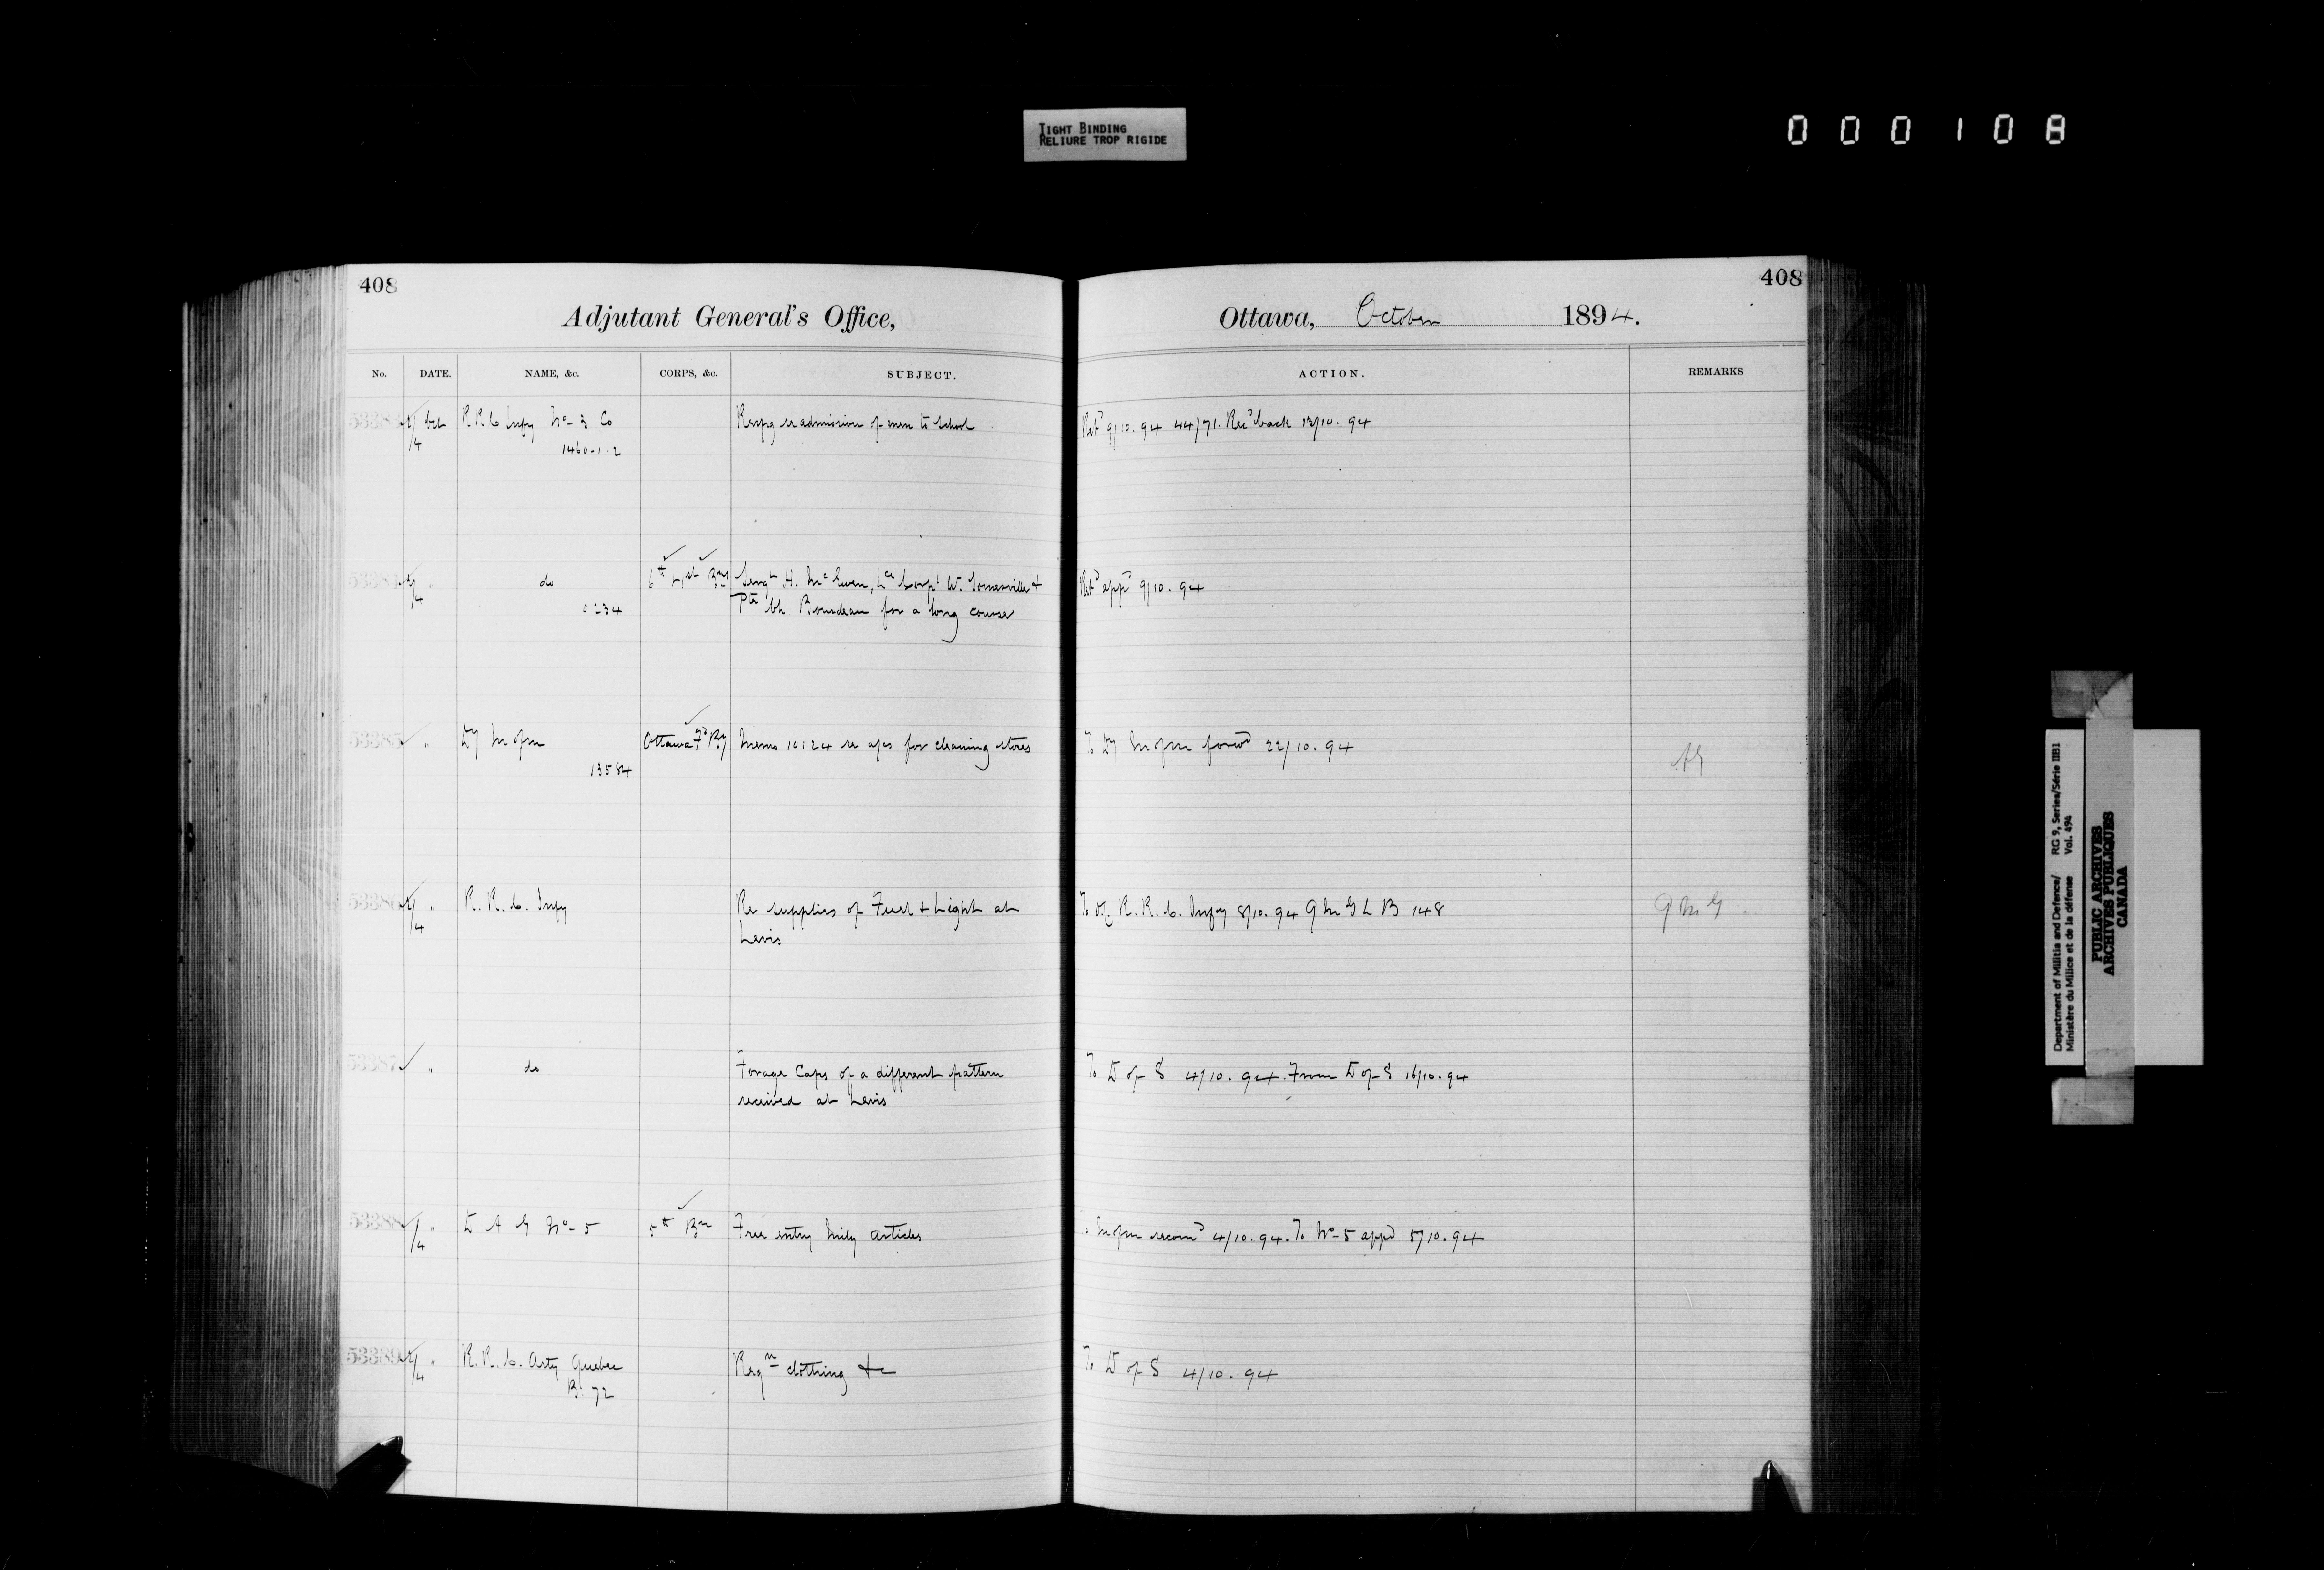 TIGHT BINDING
RELIURE TROP RIGIDE
000108
408
Adjutant General's Office,
No. DATE. NAME, &c. CORPS, &c. SUBJECT.
53383 2/4 Oct R.R.C. Infy No-3 Co Respg re admission of men to School
1460-1-2
53384 2/4 " do 6th & 1st Bns Sergt H. McEwen, Lce Corpl W. Somerville +
0234 Pte Ch. Bourdeau for a long course
53385 " Dy M of M Ottawa Fd By Memo 10124 re a/cs for cleaning stores
13584
53386 2/4 " R. R. C. Infy Re supplies of Fuel + Light at
Levis
53387 " do Forage Caps of a different pattern
received at Levis
53388 /4 " D A G No-5 5th Bn Free entry Mily articles
53389 2/4 " R. R. C. Arty Quebec Reqn clothing &c
B. 72
408
Ottawa, October 1894.
ACTION. REMARKS
Retd 9/10.94 44/71. Recd back 13/10.94
Retd appd 9/10.94
To Dy M of M forwd 22/10.94 AG
To OC R. R. C. Infy 8/10.94 QMG LB 148 QMG
To D of S 4/10.94. From D of S 16/10.94
M of M recomd 4/10.94. To No-5 appd 5/10.94
To D of S 4/10.94
Department of Militia and Defence/ RG 9, Series/Série IIB1
Ministère du Milice et de la défense Vol. 494
PUBLIC ARCHIVES
ARCHIVES PUBLIQUES
CANADA